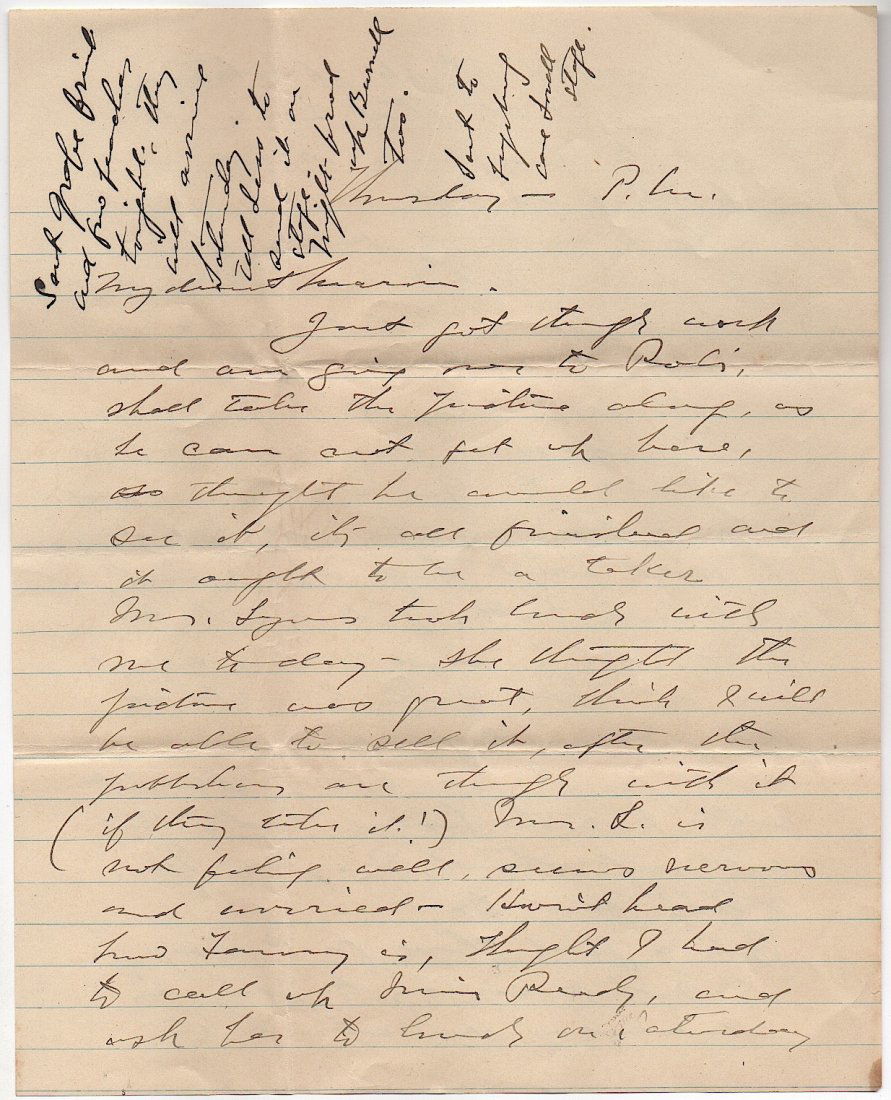 Sent Grape Fruit
and two peaches
tonight. They
will arrive
Saturday
tell to
send it on
stage.
Night
up Burnell
too.
Sent to
care Snell
stage.
Thursday - P.M.
My dearest Marion.
Just got through work
and am going over to Rob's,
shall take the picture along, as
he can not get up here,
so thought he would like to
see it, it's all finished and
it ought to be a taker
Mrs. Lyons took lunch with
me today - she thought the
picture was great, think I will
be able to sell it, after the
publishers are through with it
(if they take it!) Mrs. L. is
not feling well, seems nervous
and worried - Havn't heard
how Fanny is, thought I had
to call up Miss Ready, and
ask her to lunch on Saturday